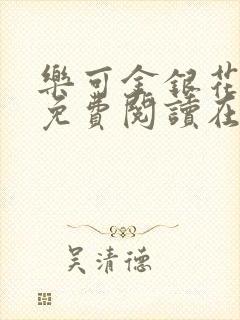 樂可金銀花
免費閱讀在
吳清德